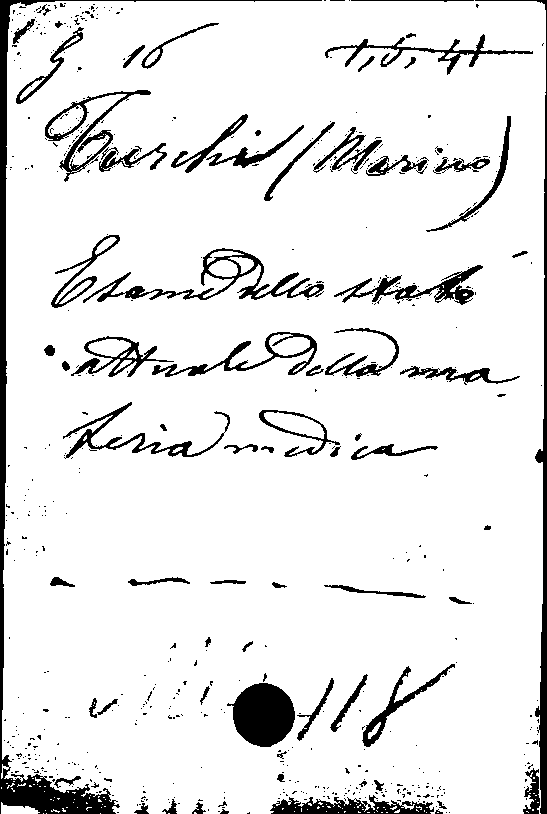 G. 16 1, 5, 41
Toerchi (Marino)
Esame dello stato
attuale della ma
teria medica
118